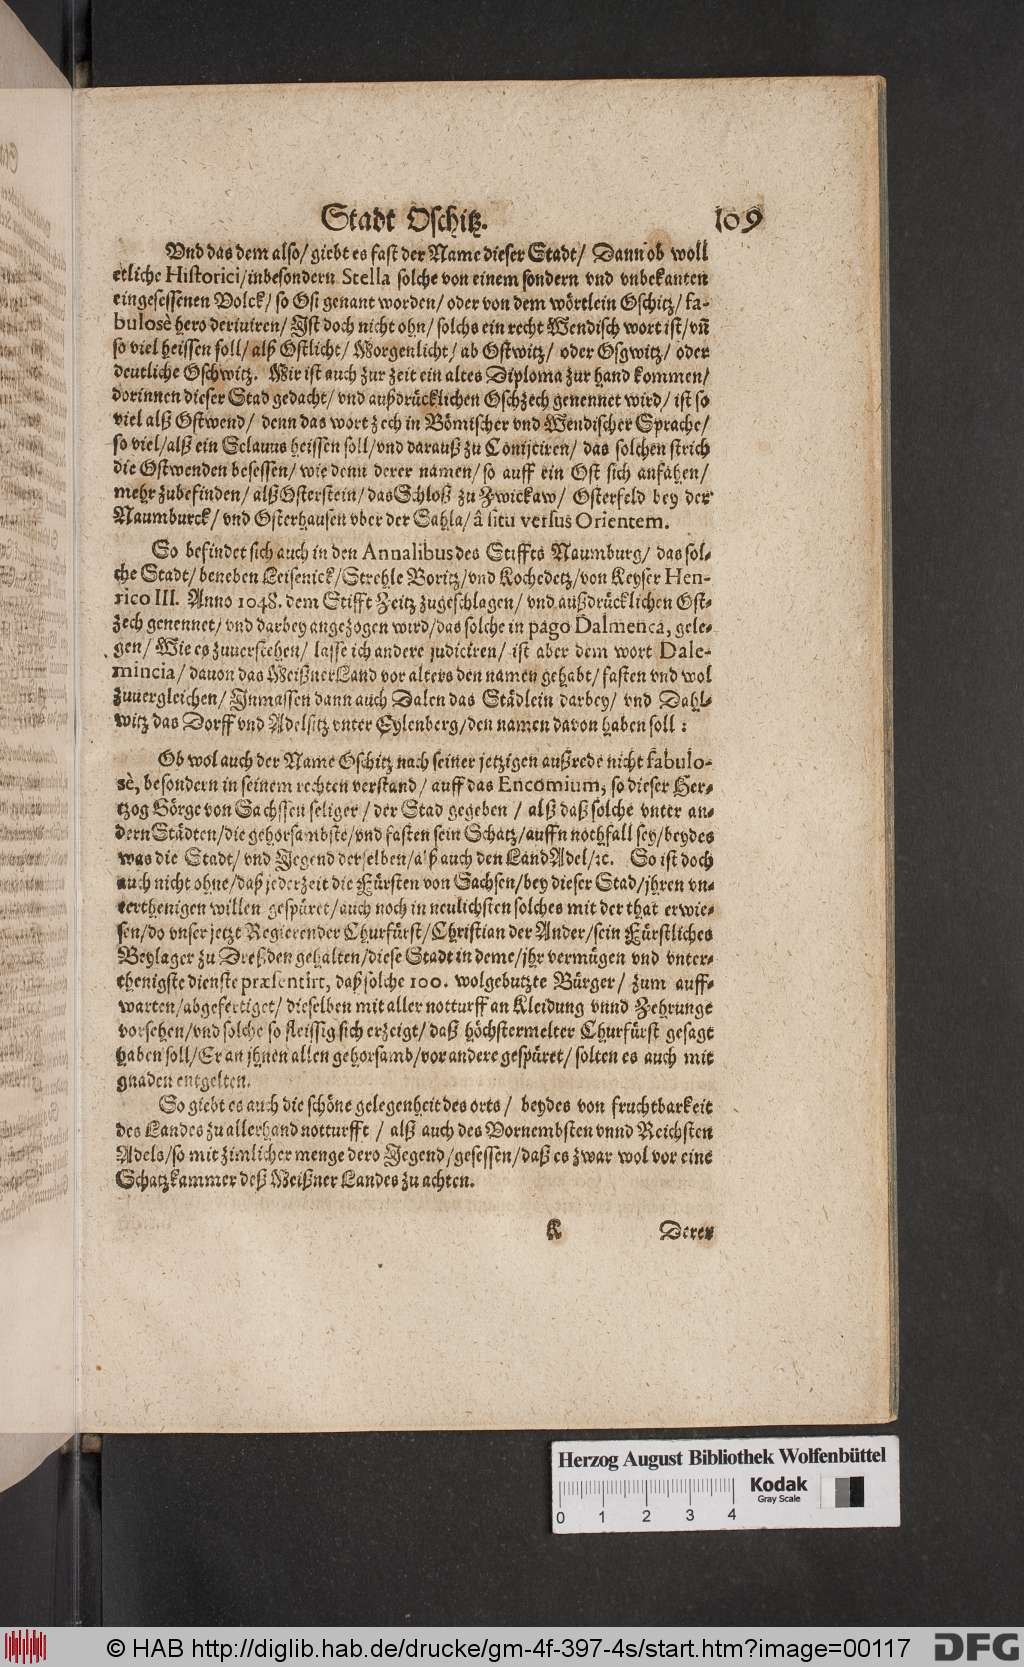 Stadt Oschitz. 109
Vnd das dem also/ giebt es fast der Name dieser Stadt/ Dann ob woll
etliche Historici/ inbesondern Stella solche von einem sondern vnd vnbekanten
eingesessenen Volck/ so Osi genant worden/ oder von dem wörtlein Oschitz/ fa-
bulosè hero deriuiren/ Ist doch nicht ohn/ solchs ein recht Wendisch wort ist/ vñ
so viel heissen soll/ alß Ostlicht/ Morgenlicht/ ab Ostwitz/ oder Osgwitz/ oder
deutliche Oschwitz. Mir ist auch zur zeit ein altes Diploma zur hand kommen/
dorinnen dieser Stad gedacht/ vnd außdrücklichen Oschzech genennet wird/ ist so
viel alß Ostwend/ denn das wort zech in Bömischer vnd Wendischer Sprache/
so viel/ alß ein Sclauus heissen soll/ vnd darauß zu Conijciren/ das solchen strich
die Ostwenden besessen/ wie denn derer namen/ so auff ein Ost sich anfahen/
mehr zubefinden/ alß Osterstein/ das Schloß zu Zwickaw/ Osterfeld bey der
Naumburck/ vnd Osterhausen vber der Sahla/ â situ versus Orientem.
So befindet sich auch in den Annalibus des Stiffts Naumburg/ das sol-
che Stadt/ beneben Leisenick/ Strehle Boritz/ vnd Kochedetz/ von Keyser Hen-
rico III. Anno 1048. dem Stifft Zeitz zugeschlagen/ vnd außdrücklichen Ost-
zech genennet/ vnd darbey angezogen wird/ das solche in pago Dalmenca, gele-
gen/ Wie es zuuerstehen/ lasse ich andere judiciren/ ist aber dem wort Dale-
mincia/ dauon das Meißner Land vor alters den namen gehabt/ fasten vnd wol
zuuergleichen/ Inmassen dann auch Dalen das Städlein darbey/ vnd Dahl-
witz das Dorff vnd Adelsitz vnter Eylenberg/ den namen davon haben soll:
Ob wol auch der Name Oschitz nach seiner jetzigen außrede nicht fabulo-
sè, besondern in seinem rechten verstand/ auff das Encomium, so dieser Her-
tzog Görge von Sachssen seliger/ der Stad gegeben/ alß daß solche vnter an-
dern Städten/ die gehorsambste/ vnd fasten sein Schatz/ auffn nothfall sey/ beydes
was die Stadt/ vnd Jegend derselben/ alß auch den Land Adel/ ꝛc. So ist doch
auch nicht ohne/ daß jederzeit die Fürsten von Sachsen/ bey dieser Stad/ jhren vn-
terthenigen willen gespüret/ auch noch in neulichsten solches mit der that erwie-
sen/ do vnser jetzt Regierender Churfürst/ Christian der Ander/ sein Fürstliches
Beylager zu Dreßden gehalten/ diese Stadt in deme/ jhr vermügen vnd vnter-
thenigste dienste præsentirt, daß solche 100. wolgebutzte Bürger/ zum auff-
warten/ abgefertiget/ dieselben mit aller notturfft an Kleidung vnnd Zehrunge
vorsehen/ vnd solche so fleissig sich erzeigt/ daß höchstermelter Churfürst gesagt
haben soll/ Er an jhnen allen gehorsamb/ vor andere gespüret/ solten es auch mit
gnaden entgelten.
So giebt es auch die schöne gelegenheit des orts/ beydes von fruchtbarkeit
des Landes zu allerhand notturfft/ alß auch des Vornembsten vnnd Reichsten
Adels/ so mit zimlicher menge dero Jegend/ gesessen/ daß es zwar wol vor eine
Schatzkammer deß Meißner Landes zu achten.
K Derer
Herzog August Bibliothek Wolfenbüttel
Kodak
Gray Scale
0 1 2 3 4
© HAB http://diglib.hab.de/drucke/gm-4f-397-4s/start.htm?image=00117 DFG